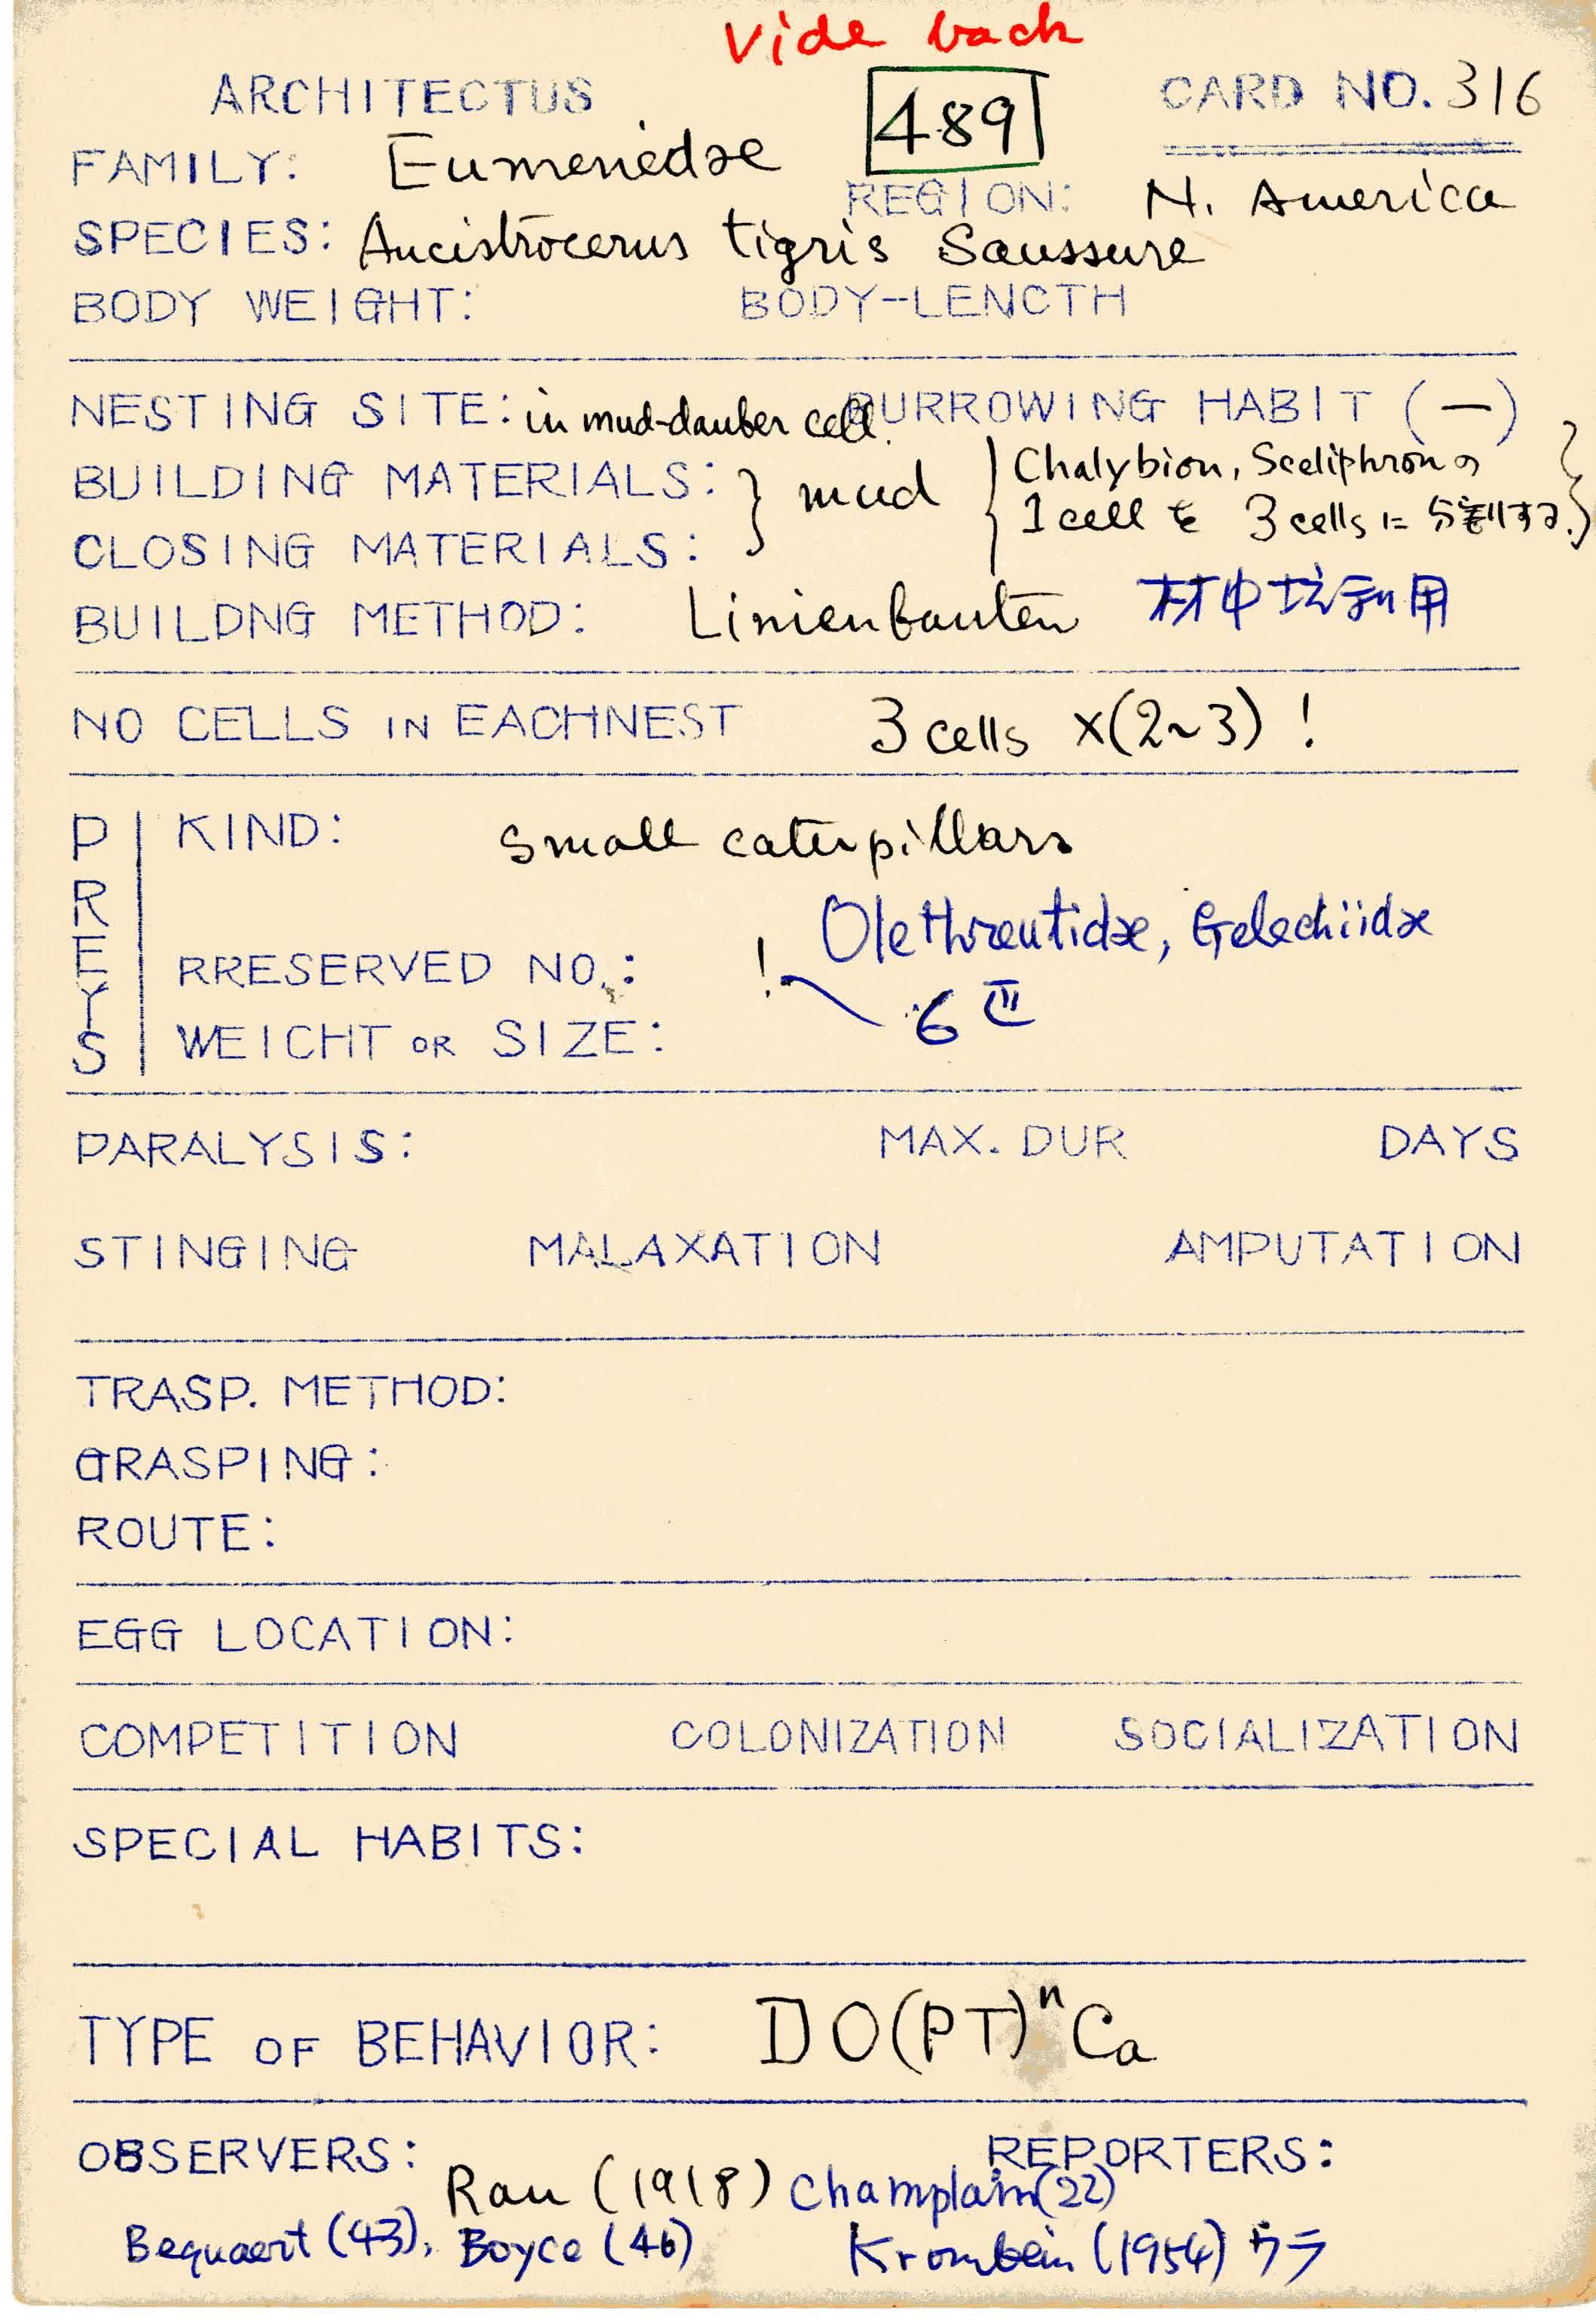 Vide back
ARCHITECTUS 489 CARD NO. 316
FAMILY: Eumenedae
REGION: N. America
SPECIES: Ancistrocerus tigris Saussure
BODY WEIGHT: BODY-LENCTH
NESTING SITE: in mud-dauber cell. BURROWING HABIT (—)
BUILDING MATERIALS: } mud { Chalybion, Sceliphronの
CLOSING MATERIALS: 1 cell を 3 cells に する. }
BUILDNG METHOD: Linienbauten 材中坑利用
NO CELLS IN EACHNEST 3 cells ×(2~3) !
PREYS
KIND: small caterpillars
Olethreutidae, Gelechiidae
RRESERVED NO.: !
6
WEICHT OR SIZE:
PARALYSIS: MAX. DUR DAYS
STINGING MALAXATION AMPUTATION
TRASP. METHOD:
GRASPING:
ROUTE:
EGG LOCATION:
COMPETITION COLONIZATION SOCIALIZATION
SPECIAL HABITS:
TYPE OF BEHAVIOR: DO(PT)ⁿCa
OBSERVERS: REPORTERS:
Rau (1918) Champlain(22)
Bequaert (43), Boyce (46) Krombein (1954) ウラ